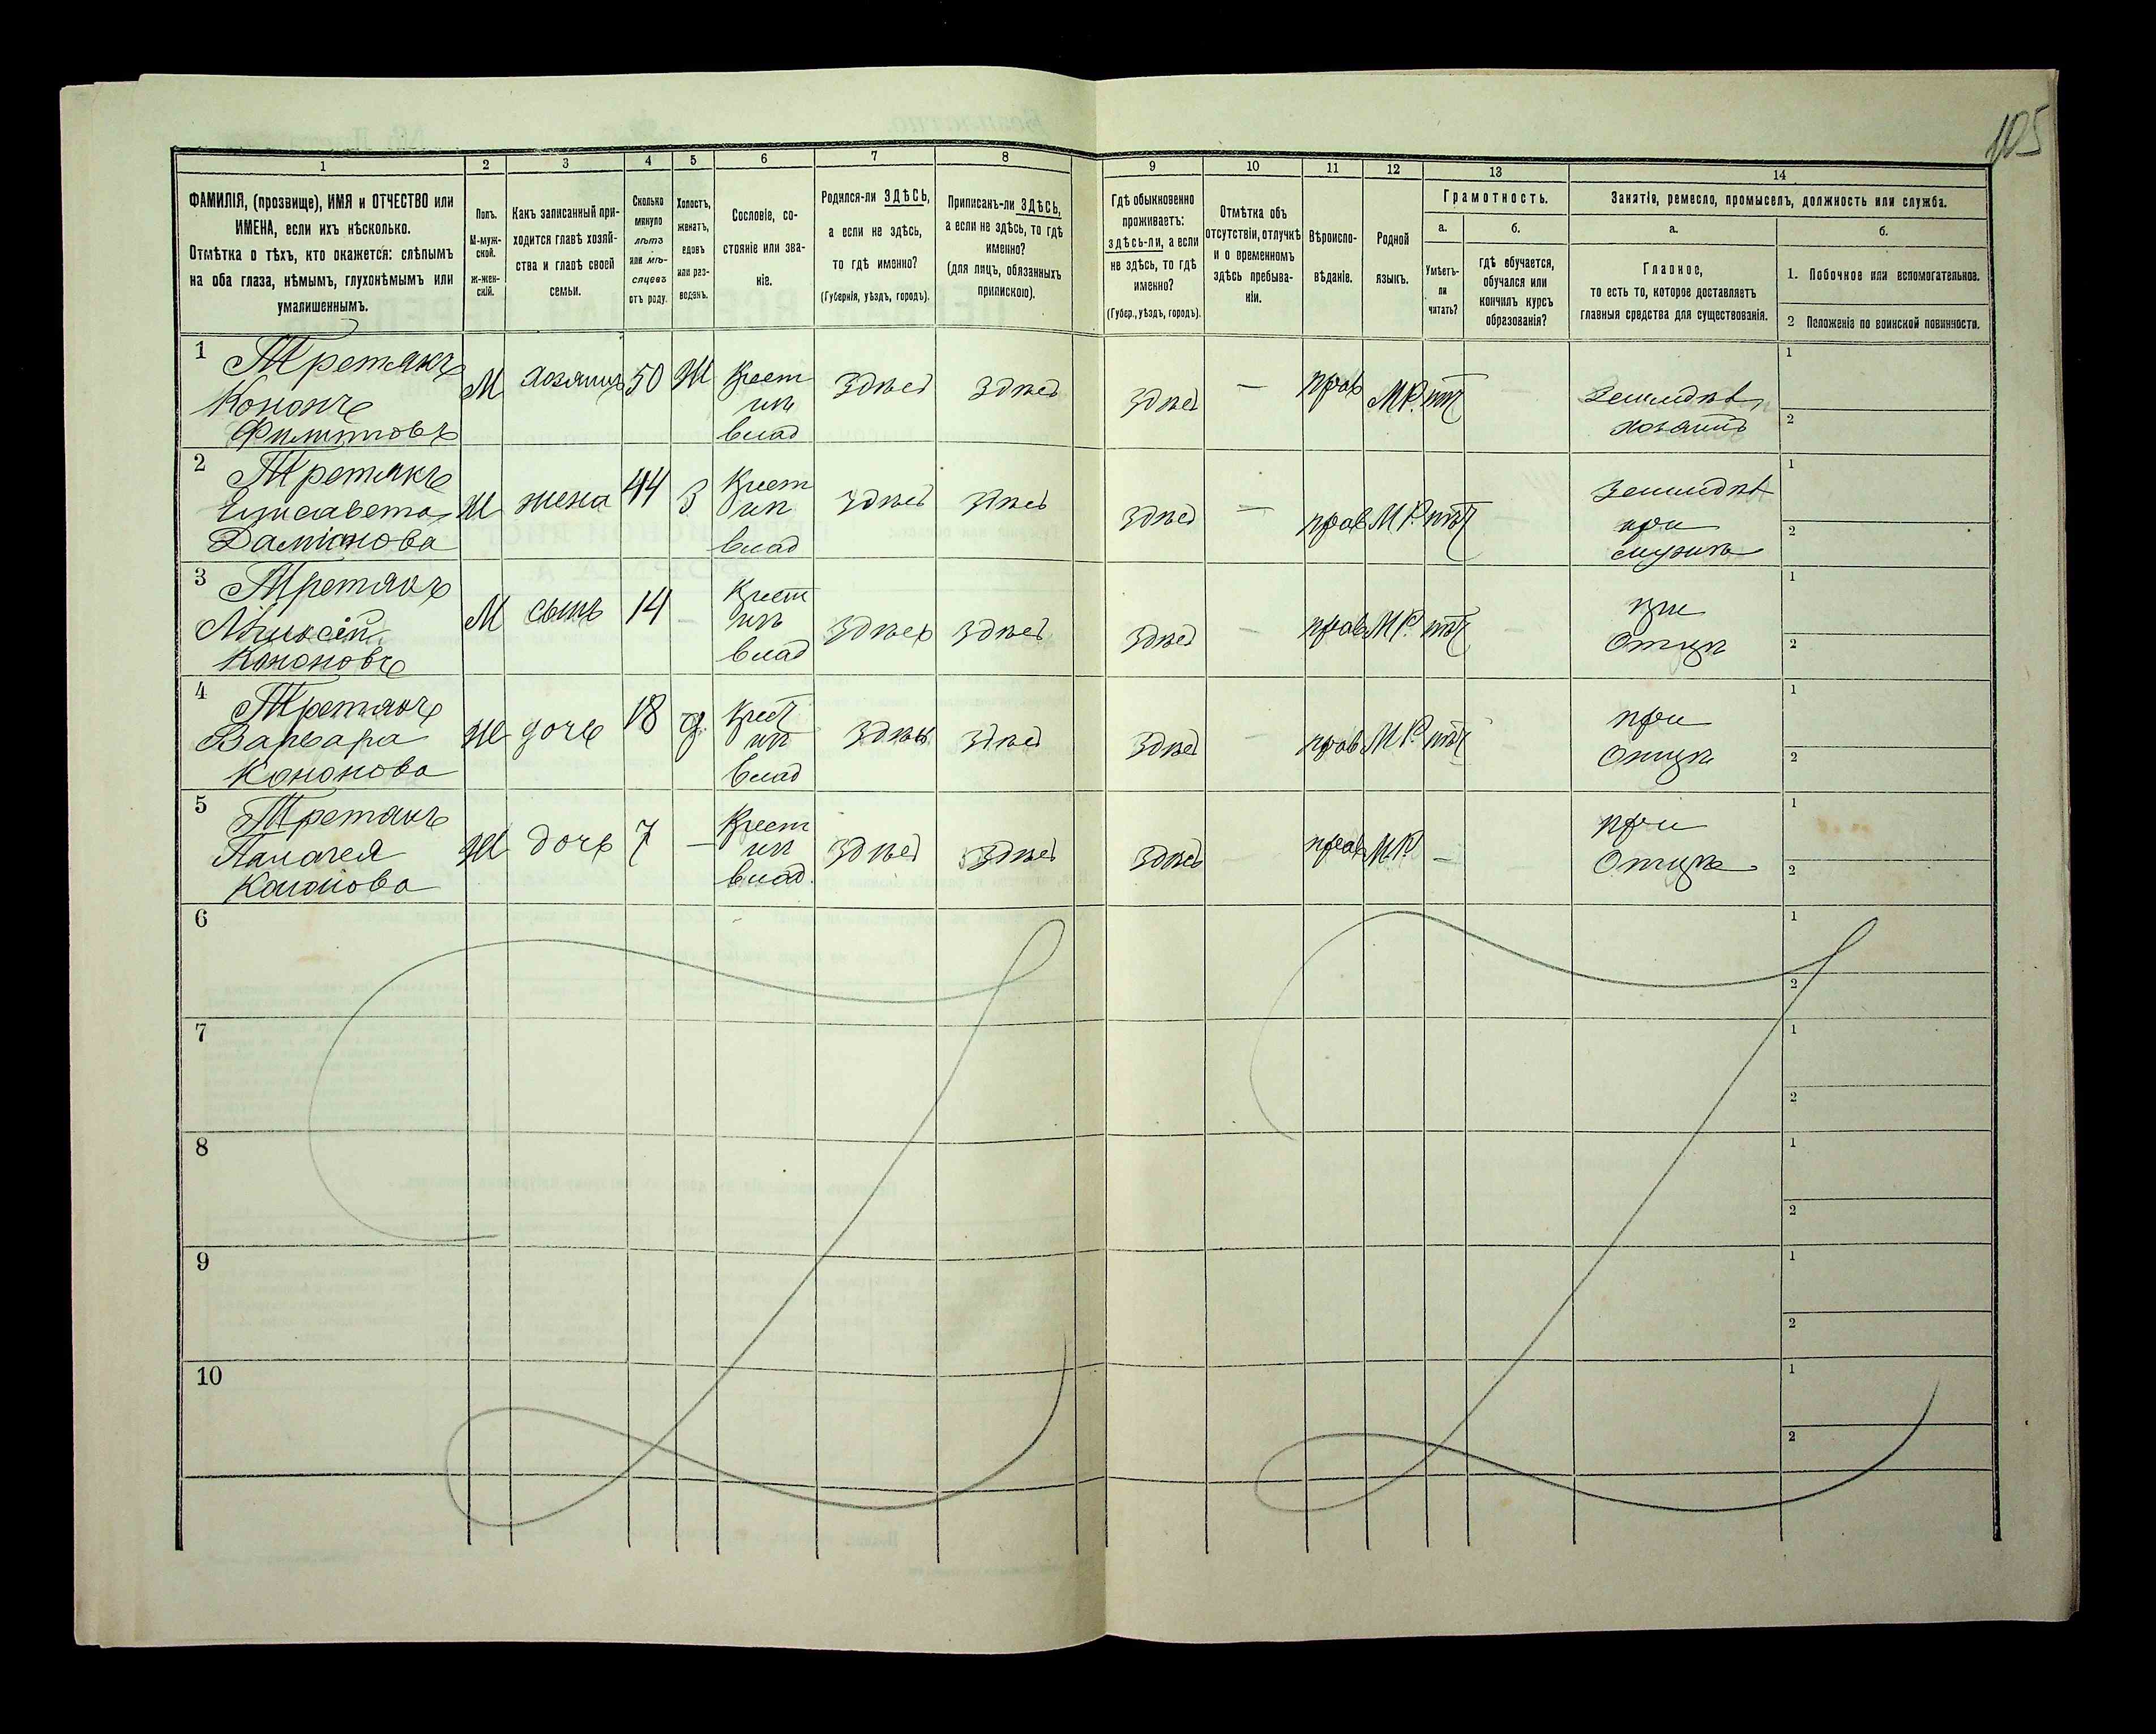 105
1
2
3
4
5
6
7
8
9
10
11
12
13
14
ФАМИЛІЯ, (прозвище), ИМЯ и ОТЧЕСТВО или
ИМЕНА, если ихъ нѣсколько.
Отмѣтка о тѣхъ, кто окажется: слѣпымъ
на оба глаза, нѣмымъ, глухонѣмымъ или
умалишеннымъ.
Полъ.
М-муж-
ской.
ж-жен-
скій.
Какъ записанный при-
ходится главѣ хозяй-
ства и главѣ своей
семьи.
Сколько
минуло
лѣтъ
или мѣ-
сяцевъ
отъ роду.
Холостъ,
женатъ,
вдовъ
или раз-
веденъ.
Сословіе, со-
стояніе или зва-
ніе.
Родился-ли ЗДѢСЬ,
а если не здѣсь,
то гдѣ именно?
(Губернія, уѣздъ, городъ).
Приписанъ-ли ЗДѢСЬ,
а если не здѣсь, то гдѣ
именно?
(для лицъ, обязанныхъ
припискою).
Гдѣ обыкновенно
проживаетъ:
здѣсь-ли, а если
не здѣсь, то гдѣ
именно?
(Губер., уѣздъ, городъ).
Отмѣтка объ
отсутствіи, отлучкѣ
и о временномъ
здѣсь пребыва-
ніи.
Вѣроиспо-
вѣданіе.
Родной
языкъ.
Грамотность.
а.
б.
Умѣетъ-
ли
читать?
гдѣ обучается,
обучался или
кончилъ курсъ
образованія?
Занятіе, ремесло, промыселъ, должность или служба.
а.
б.
Главное,
то есть то, которое доставляетъ
главныя средства для существованія.
1. Побочное или вспомогательное.
2 Положеніе по воинской повинности.
1 Третякъ М хозяинъ 50 Ж Крест здѣсь здѣсь здѣсь — прав М.Р. нѣт — Земледѣл 1
Кононъ изъ хозяинъ 2
Филипповъ влад
2 Третякъ Ж жена 44 З Крест здѣсь здѣсь здѣсь — прав М.Р. нѣт — Земледѣл 1
Елисавета изъ при 2
Даміанова влад мужѣ
3 Третякъ М сынъ 14 — Крест здѣсь здѣсь здѣсь — прав М.Р. нѣт — при 1
Алексѣй изъ Отцѣ 2
Кононовъ влад
4 Третякъ Ж дочь 18 д Крест здѣсь здѣсь здѣсь — прав М.Р. нѣт — при 1
Варвара изъ Отцѣ 2
Кононова влад
5 Третякъ Ж дочь 7 — Крест здѣсь здѣсь здѣсь — прав М.Р. — — при 1
Палагея изъ Отцѣ 2
Кононова влад.
6 1
2
7 1
2
8 1
2
9 1
2
10 1
2